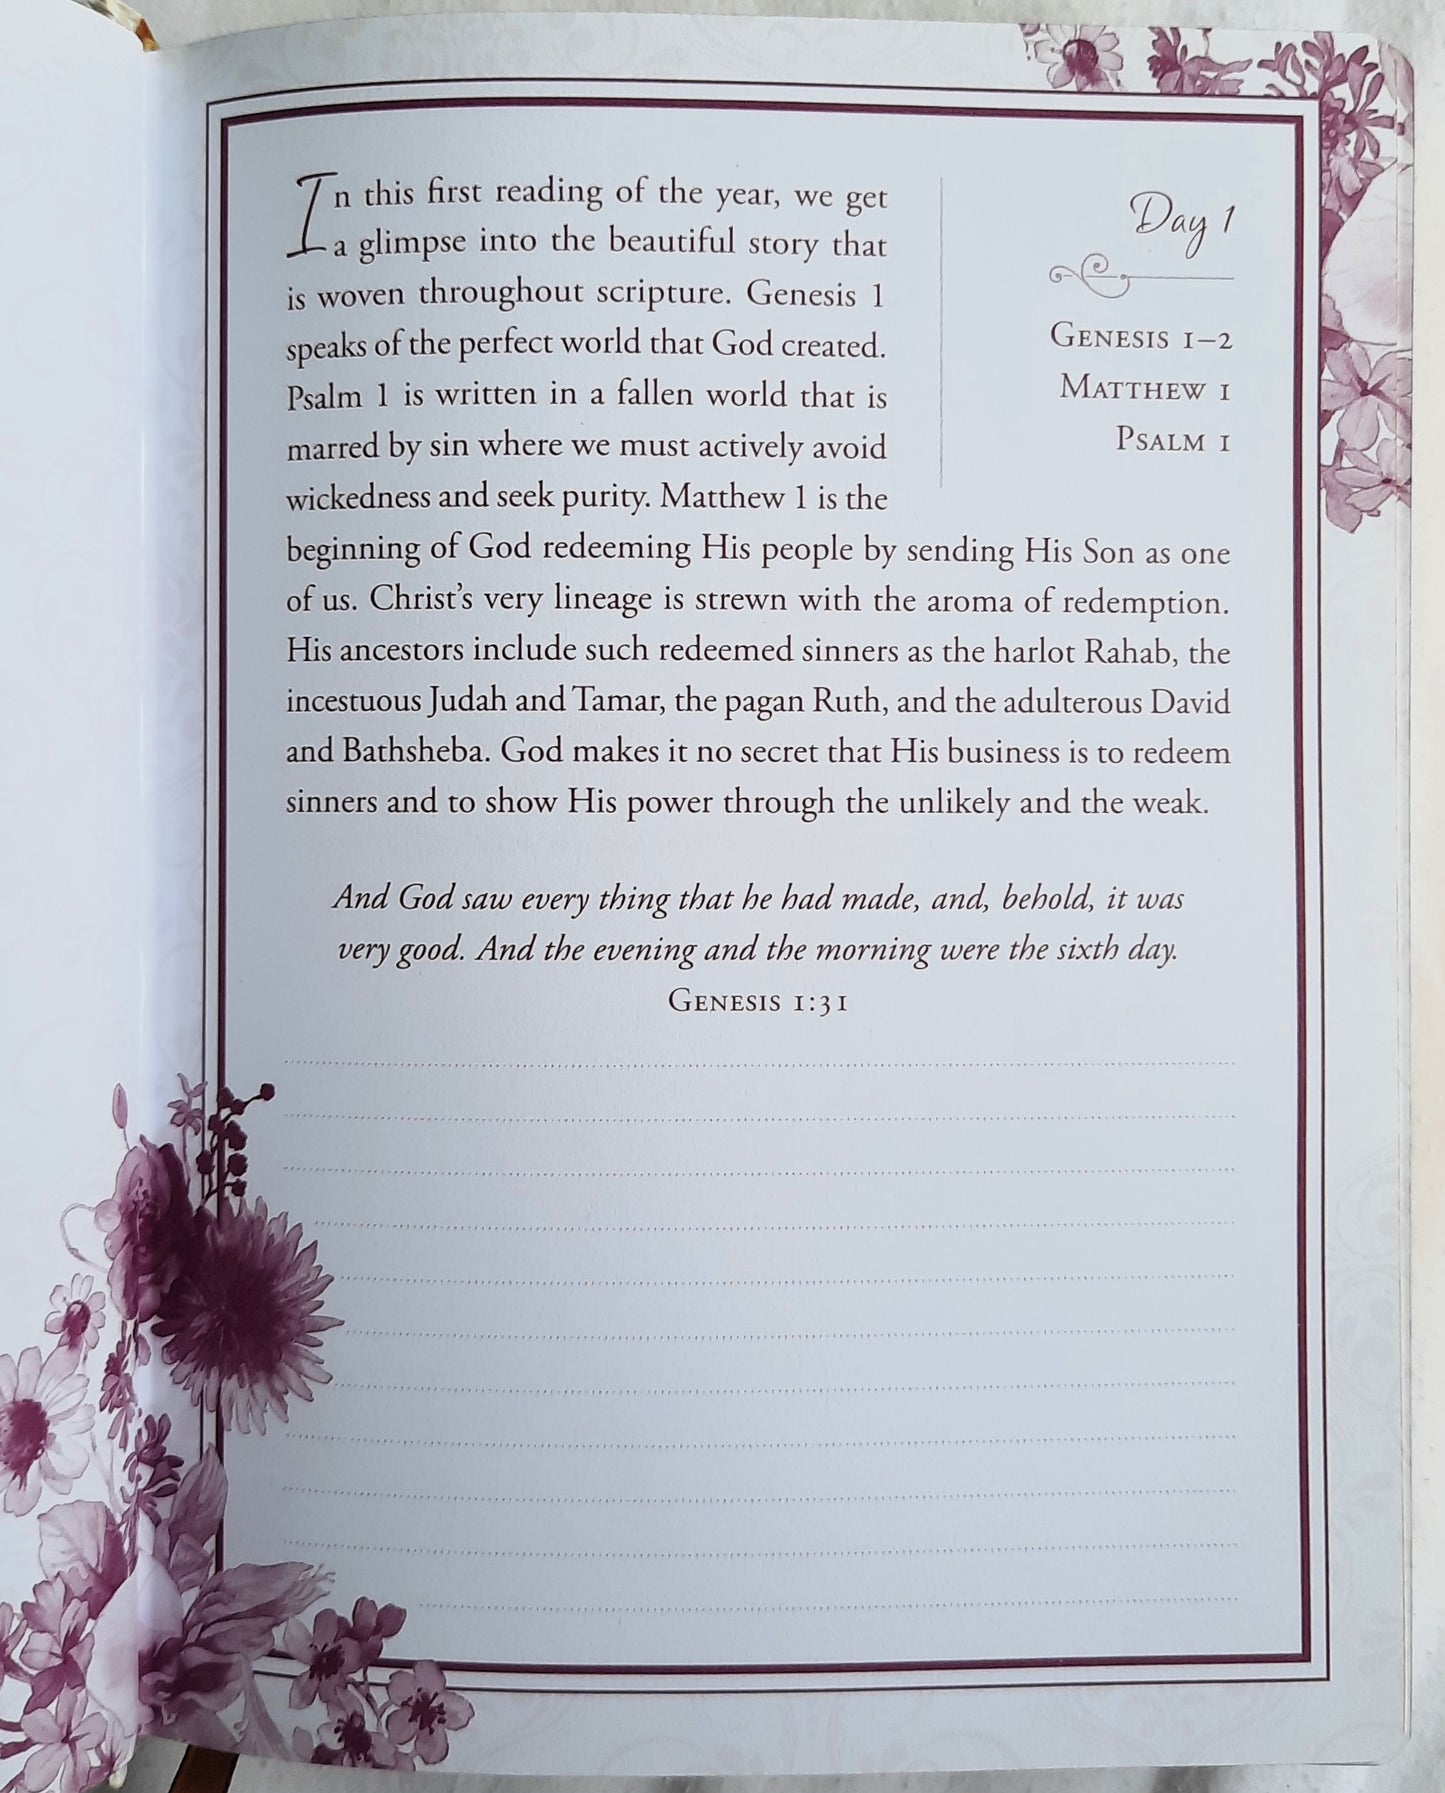 In this first reading of the year, we get
a glimpse into the beautiful story that
is woven throughout scripture. Genesis 1
speaks of the perfect world that God created.
Psalm 1 is written in a fallen world that is
marred by sin where we must actively avoid
wickedness and seek purity. Matthew 1 is the
Day 1
GENESIS 1–2
MATTHEW 1
PSALM 1
beginning of God redeeming His people by sending His Son as one
of us. Christ’s very lineage is strewn with the aroma of redemption.
His ancestors include such redeemed sinners as the harlot Rahab, the
incestuous Judah and Tamar, the pagan Ruth, and the adulterous David
and Bathsheba. God makes it no secret that His business is to redeem
sinners and to show His power through the unlikely and the weak.
And God saw every thing that he had made, and, behold, it was
very good. And the evening and the morning were the sixth day.
GENESIS 1:31